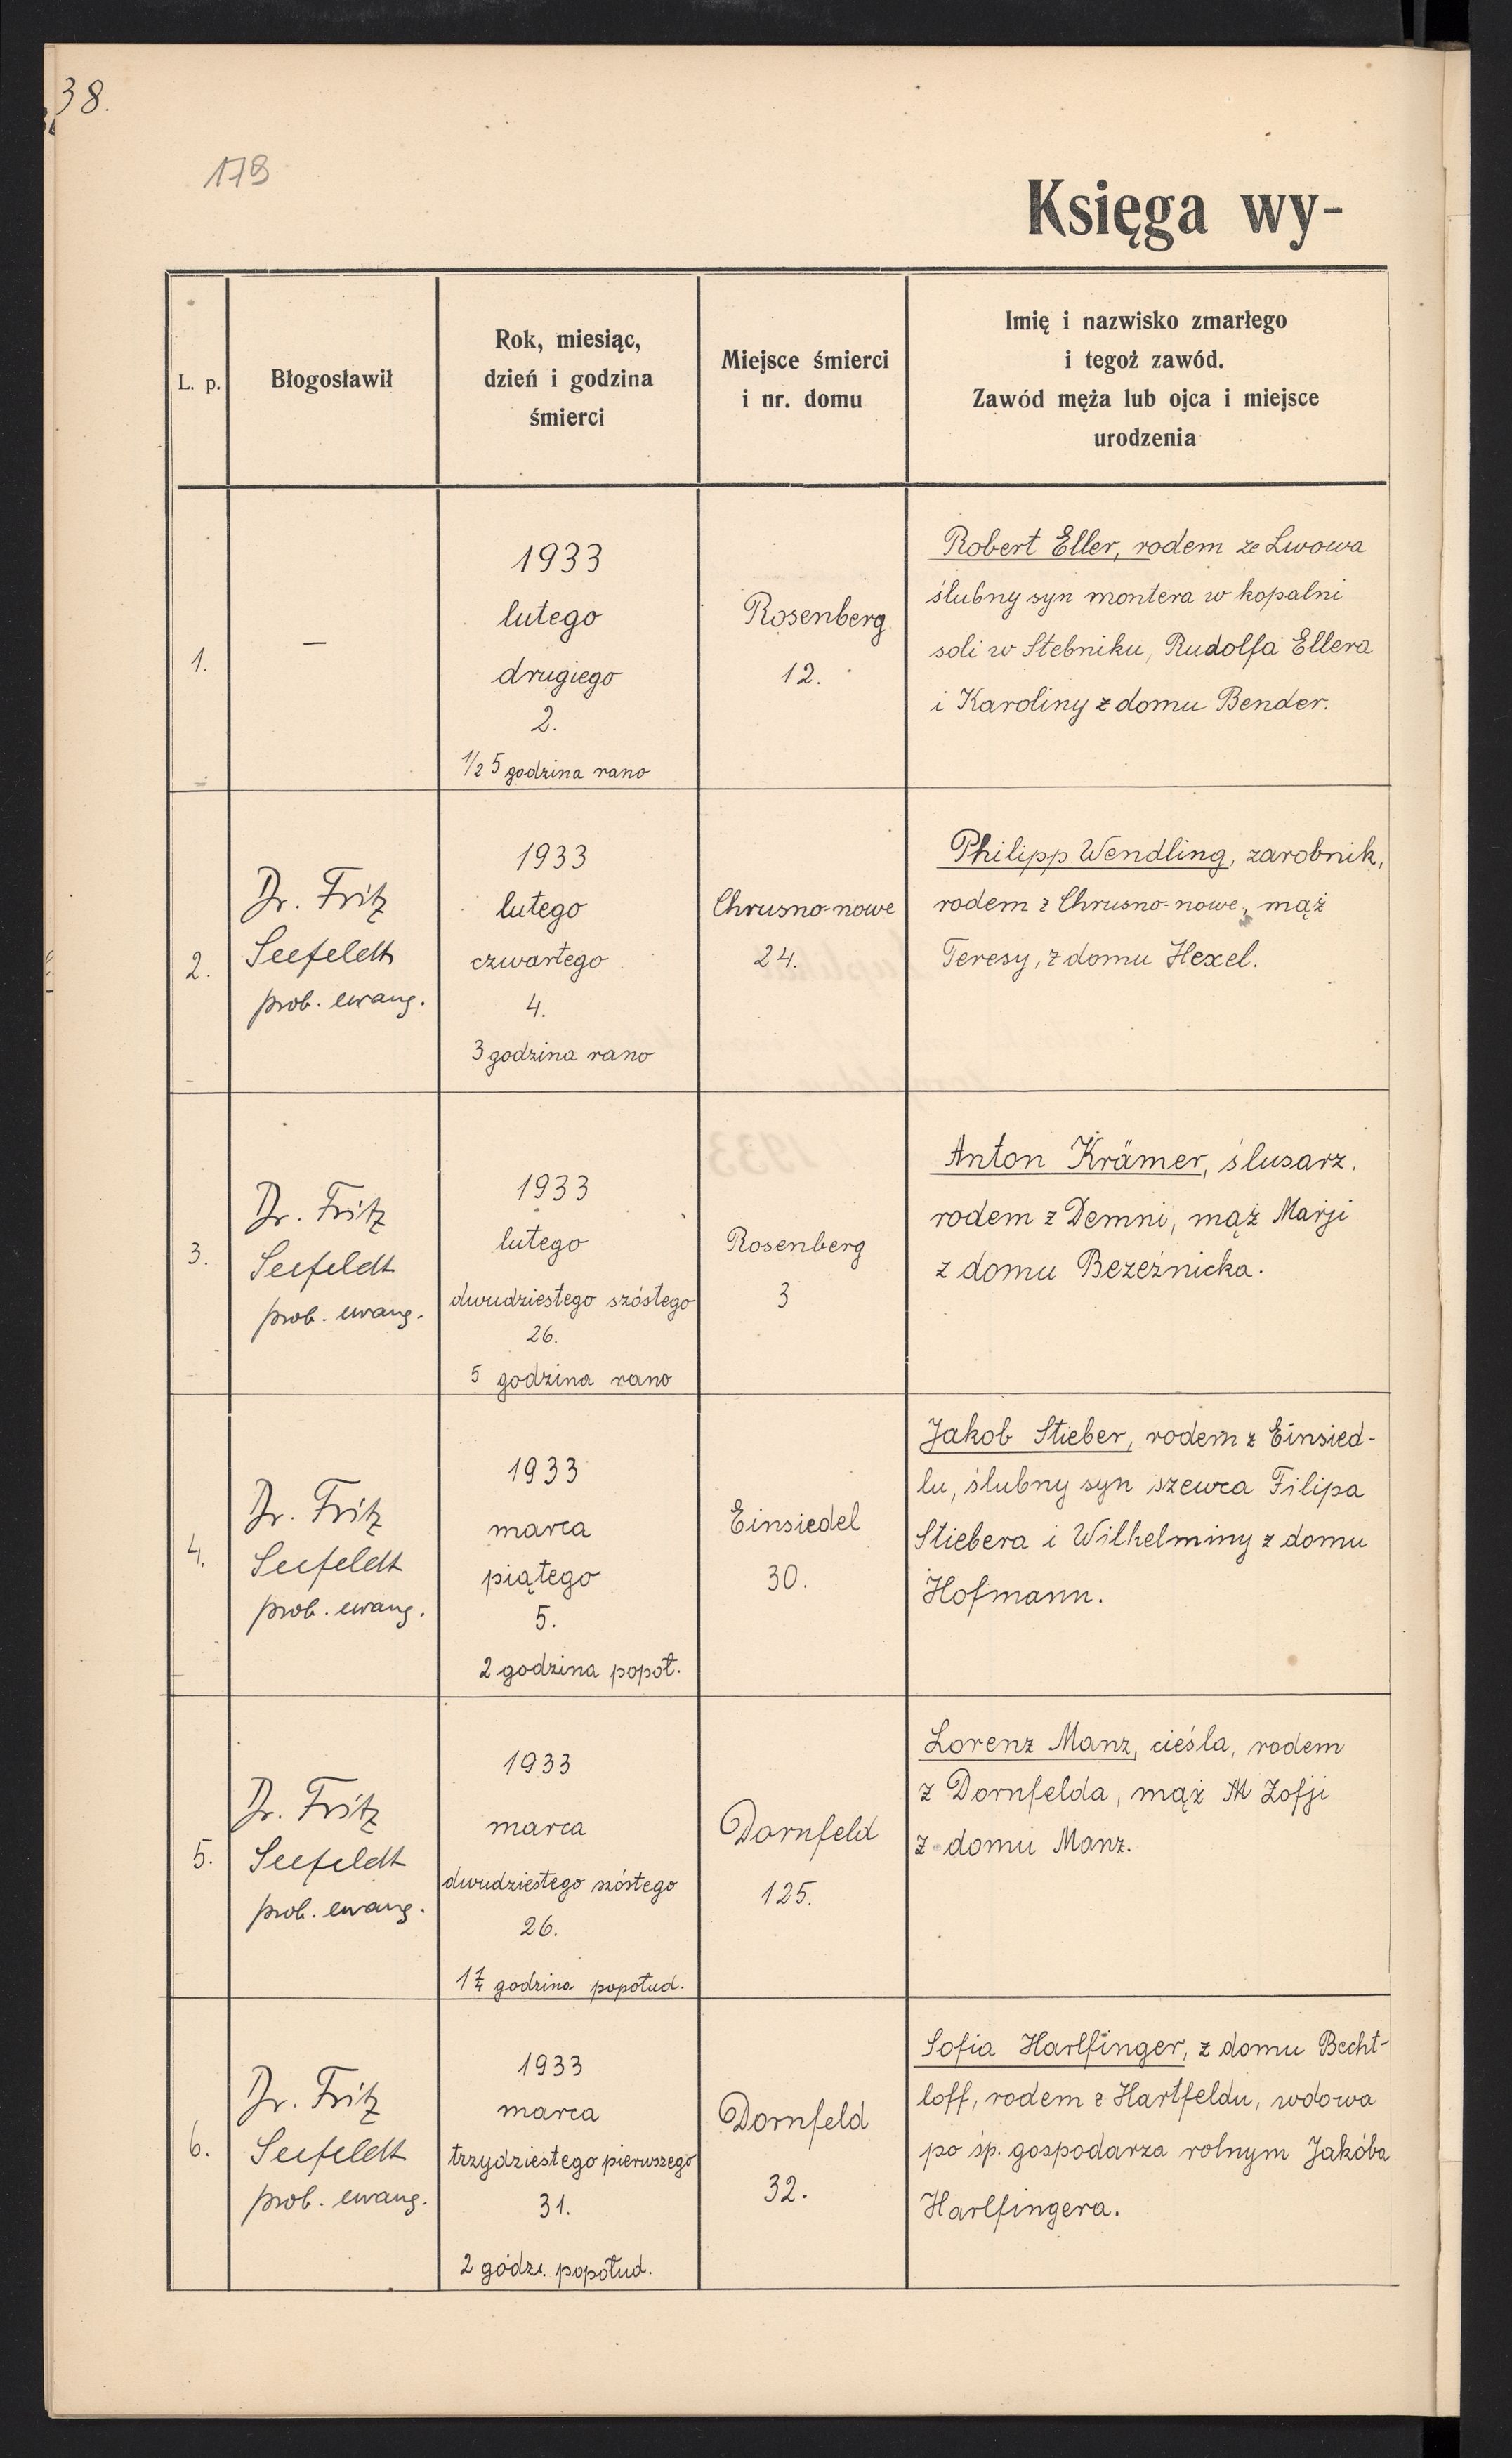 38.
179
Księga wy-
L. p.
Błogosławił
Rok, miesiąc,
dzień i godzina
śmierci
Miejsce śmierci
i nr. domu
Imię i nazwisko zmarłego
i tegoż zawód.
Zawód męża lub ojca i miejsce
urodzenia
1.
—
1933
lutego
drugiego
2.
1/2 5 godzina rano
Rosenberg
12.
Robert Eller, rodem ze Lwowa
ślubny syn montera w kopalni
soli w Stebniku, Rudolfa Ellera
i Karoliny z domu Bender.
2.
Dr. Fritz
Seefeldt
prob. ewang.
1933
lutego
czwartego
4.
3 godzina rano
Chrusno-nowe
24.
Philipp Wendling, zarobnik,
rodem z Chrusno-nowe, mąż
Teresy, z domu Hexel.
3.
Dr. Fritz
Seefeldt
prob. ewang.
1933
lutego
dwudziestego szóstego
26.
5 godzina rano
Rosenberg
3
Anton Krämer, ślusarz.
rodem z Demni, mąż Marji
z domu Bezeźnicka.
4.
Dr. Fritz
Seefeldt
prob. ewang.
1933
marca
piątego
5.
2 godzina popoł.
Einsiedel
30.
Jakob Stieber, rodem z Einsied-
lu, ślubny syn szewca Filipa
Stiebera i Wilhelminy z domu
Hofmann.
5.
Dr. Fritz
Seefeldt
prob. ewang.
1933
marca
dwudziestego szóstego
26.
godzina popołud.
Dornfeld
125.
Lorenz Manz, cieśla, rodem
z Dornfelda, mąż Zofji
z domu Manz.
6.
Dr. Fritz
Seefeldt
prob. ewang.
1933
marca
trzydziestego pierwszego
31.
2 godz. popołud.
Dornfeld
32.
Sofia Harlfinger, z domu Becht-
loff, rodem z Hartfeldu, wdowa
po śp. gospodarza rolnym Jakóba
Harlfingera.